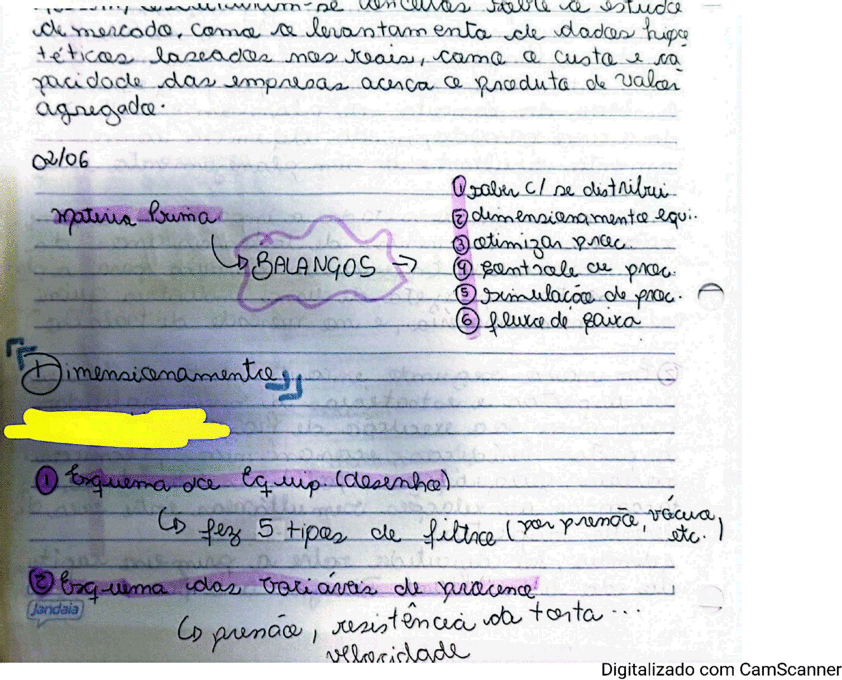 sobre o estudo
de mercado, como o levantamento de dados hipo
téticos baseados nos reais, como o custo e ca
pacidade das empresas acerca o produto de valor
agregado.
02/06
Matéria Prima
BALANÇOS →
① saber c/ se distribui
② dimensionamento equi.
③ otimizar proc.
④ controle de proc.
⑤ simulação de proc.
⑥ fluxo de caixa
Dimensionamento
① Esquema do Equip. (desenho)
↳ fez 5 tipos de filtro (por pressão, vácuo,
etc.)
② Esquema das variáveis de processo
↳ pressão, resistência da torta ...
velocidade
Jandaia
Digitalizado com CamScanner